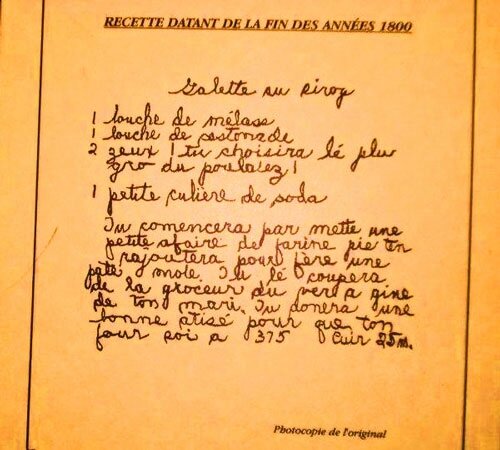 RECETTE DATANT DE LA FIN DES ANNÉES 1800
Galette au sirop
1 touche de mélass
1 touche de castonade
2 zeux ! tu choisira lé plu
gro du poulaiez !
1 petite culière de soda
Tu comencera par mette une
petite afaire de farine pie t'en
rajoutera pour fère une
pate mole. Tu lé coupera
de la groceur du vere a gine
de ton mari. Tu donera une
bonne atisé pour que ton
four soi a 375 Cuir 25 m.
Photocopie de l'original